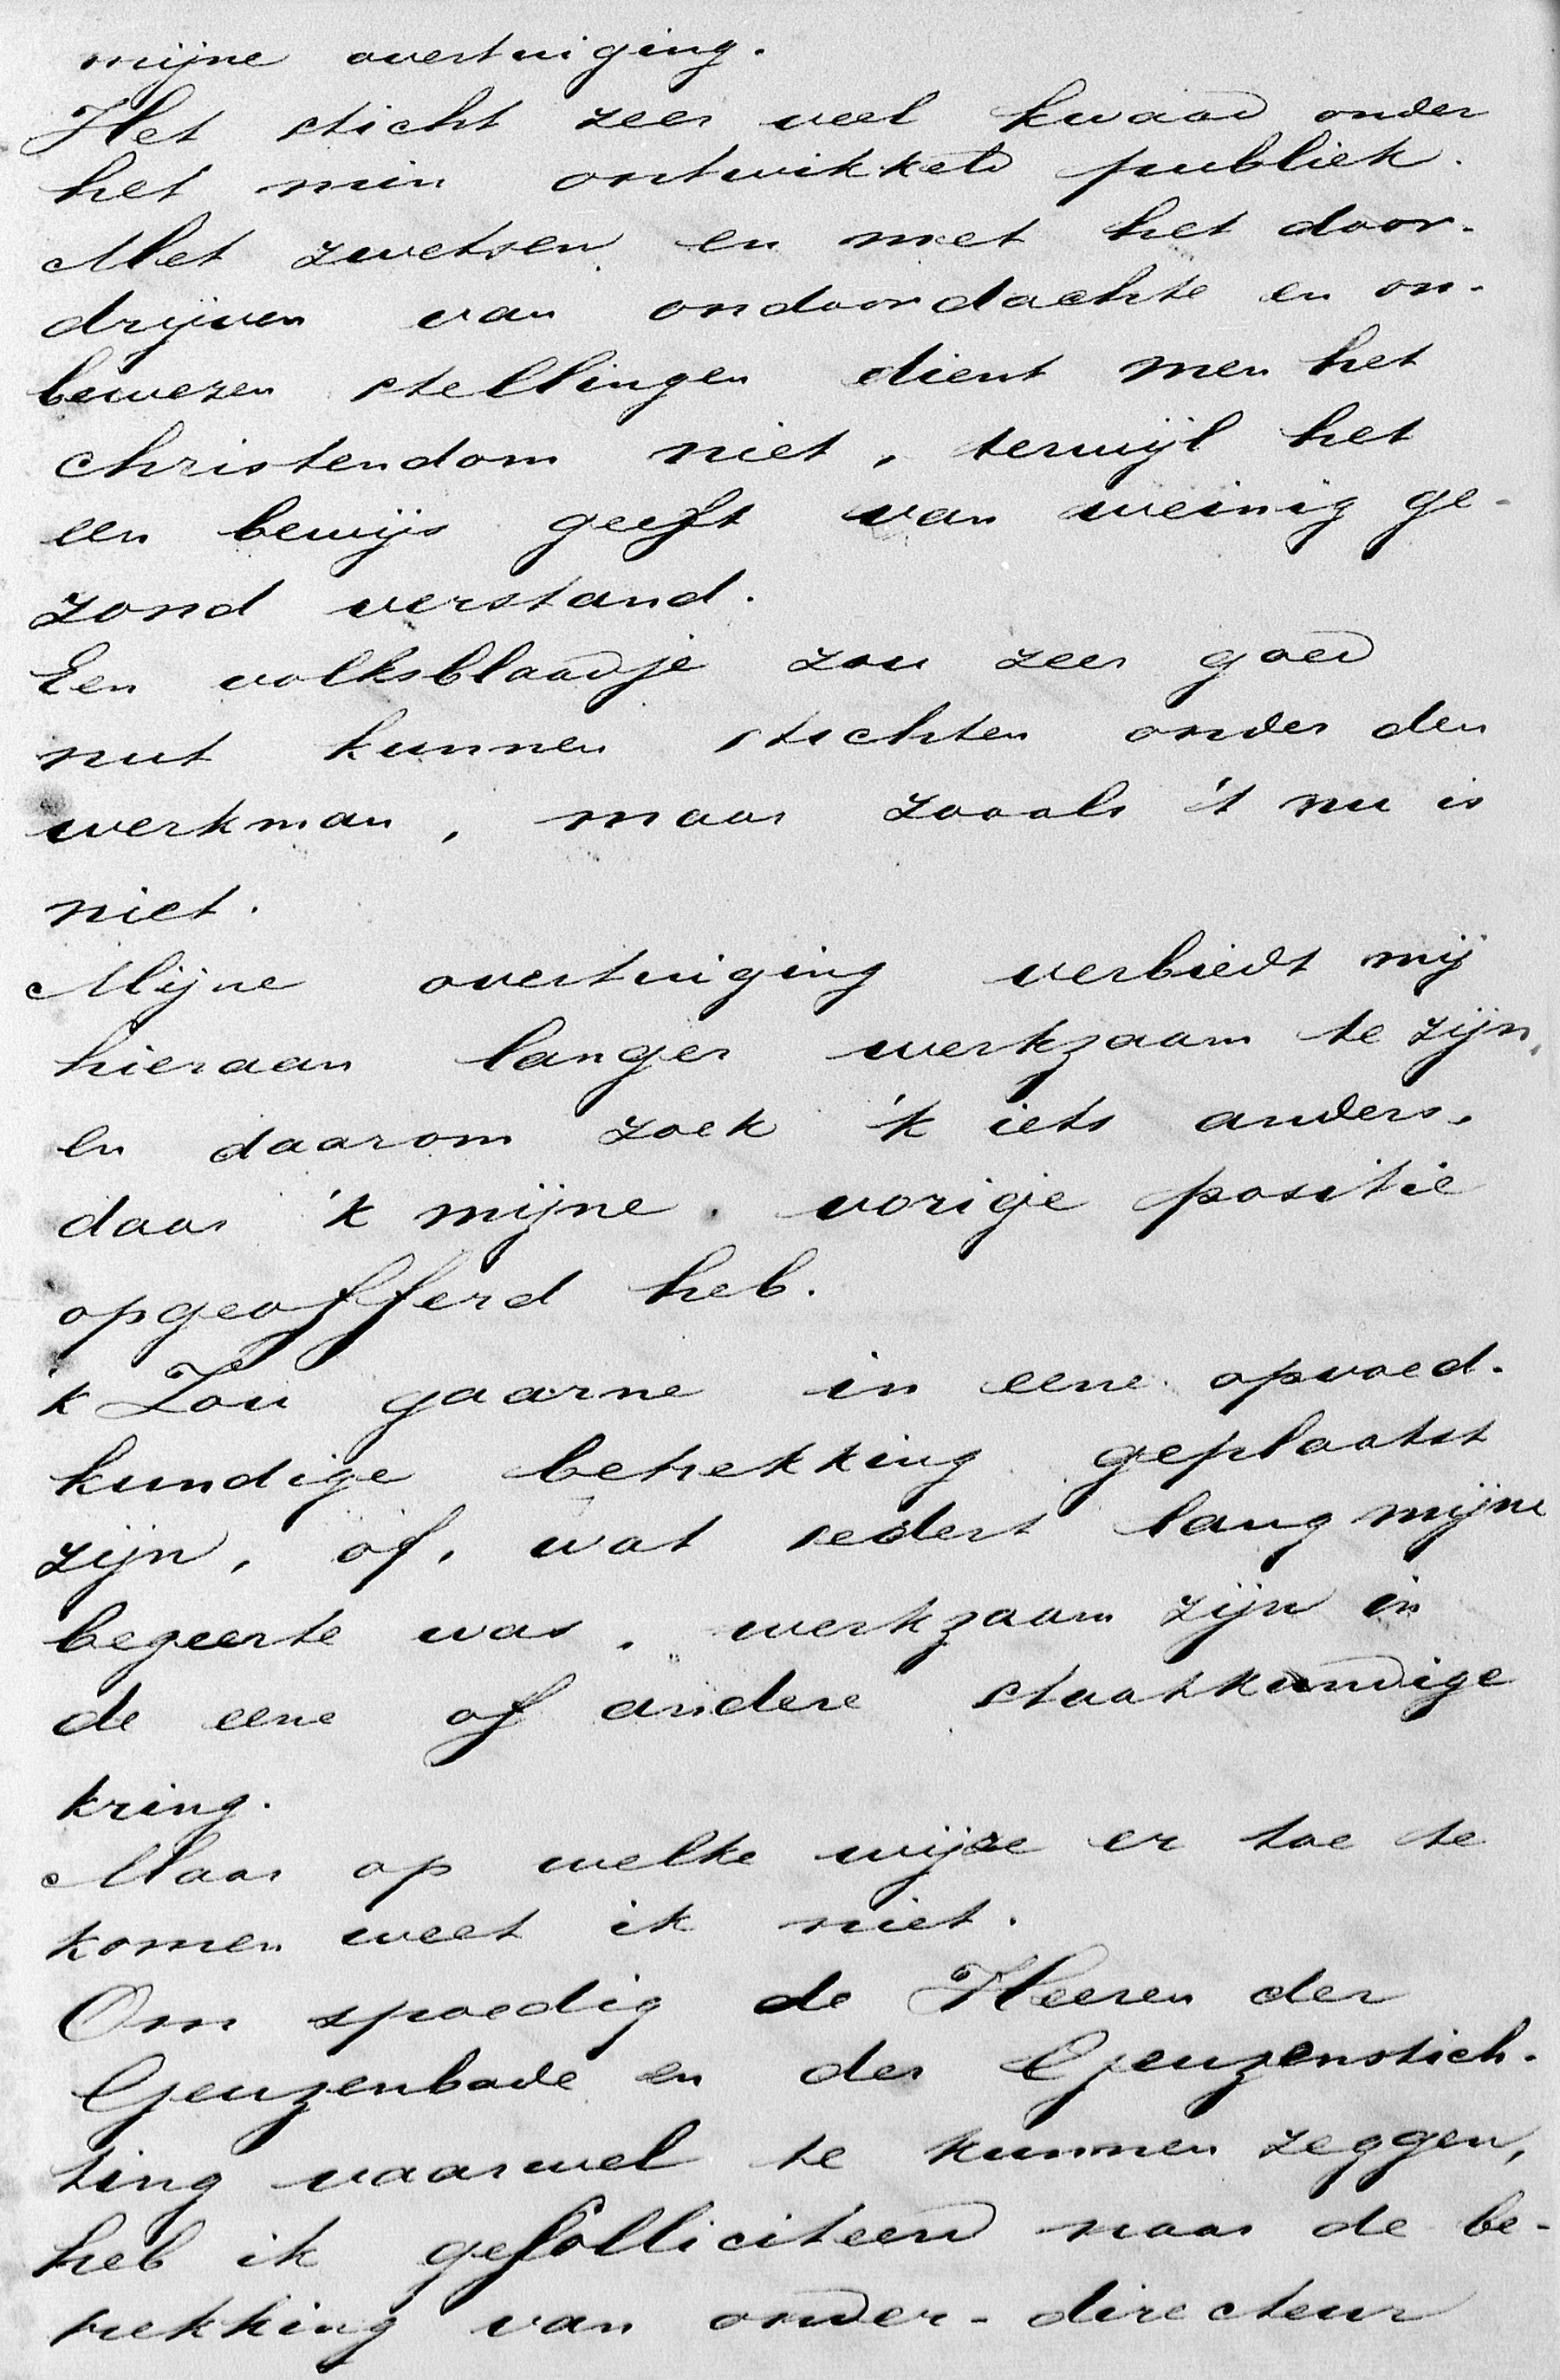 mijne overtuiging.
Het sticht zeer veel kwaad onder
het min ontwikkeld publiek.
Met zwetsen en met het door-
drijven van ondoordachte en on-
bewezen stellingen dient men het
christendom niet, terwijl het
een bewijs geeft van weinig ge-
zond verstand.
Een volksblaadje zou zeer goed
nut kunnen stichten onder den
werkman, maar zooals 't nu is
niet.
Mijne overtuiging verbiedt mij
hieraan langer werkzaam te zijn,
en daarom zoek 'k iets anders,
daar 'k mijne vorige positie
opgeofferd heb.
'k Zou gaarne in eene opvoed-
kundige betrekking geplaatst
zijn, óf, wat sedert lang mijne
begeerte was, werkzaam zijn in
de eene of andere staatkundige
kring.
Maar op welke wijze er toe te
komen weet ik niet.
Om spoedig de Heeren der
Geuzenbode en der Geuzenstich-
ting vaarwel te kunnen zeggen,
heb ik gesolliciteerd naar de be-
trekking van onder-directeur